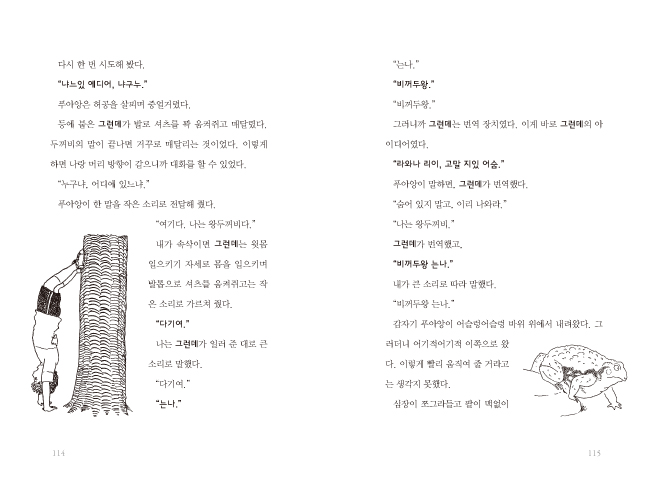 다시 한 번 시도해 봤다.
“냐느있 에디어, 냐구누.”
푸아앙은 허공을 살피며 중얼거렸다.
등에 붙은 그런데가 발로 셔츠를 꽉 움켜쥐고 매달렸다.
두꺼비의 말이 끝나면 거꾸로 매달리는 것이었다. 이렇게
하면 나랑 머리 방향이 같으니까 대화를 할 수 있었다.
“누구냐, 어디에 있느냐.”
푸아앙이 한 말을 작은 소리로 전달해 줬다.
“여기다. 나는 왕두꺼비다.”
내가 속삭이면 그런데는 윗몸
일으키기 자세로 몸을 일으키며
발톱으로 셔츠를 움켜쥐고는 작
은 소리로 가르쳐 줬다.
“다기여.”
나는 그런데가 일러 준 대로 큰
소리로 말했다.
“다기여.”
“는나.”
114
“는나.”
“비꺼두왕.”
“비꺼두왕.”
그러니까 그런데는 번역 장치였다. 이게 바로 그런데의 아
이디어였다.
“라와나 리이, 고말 지있 어숨.”
푸아앙이 말하면, 그런데가 번역했다.
“숨어 있지 말고, 이리 나와라.”
“나는 왕두꺼비.”
그런데가 번역했고,
“비꺼두왕 는나.”
내가 큰 소리로 따라 말했다.
“비꺼두왕 는나.”
갑자기 푸아앙이 어슬렁어슬렁 바위 위에서 내려왔다. 그
러더니 어기적어기적 이쪽으로 왔
다. 이렇게 빨리 움직여 줄 거라고
는 생각지 못했다.
심장이 쪼그라들고 팔이 맥없이
115